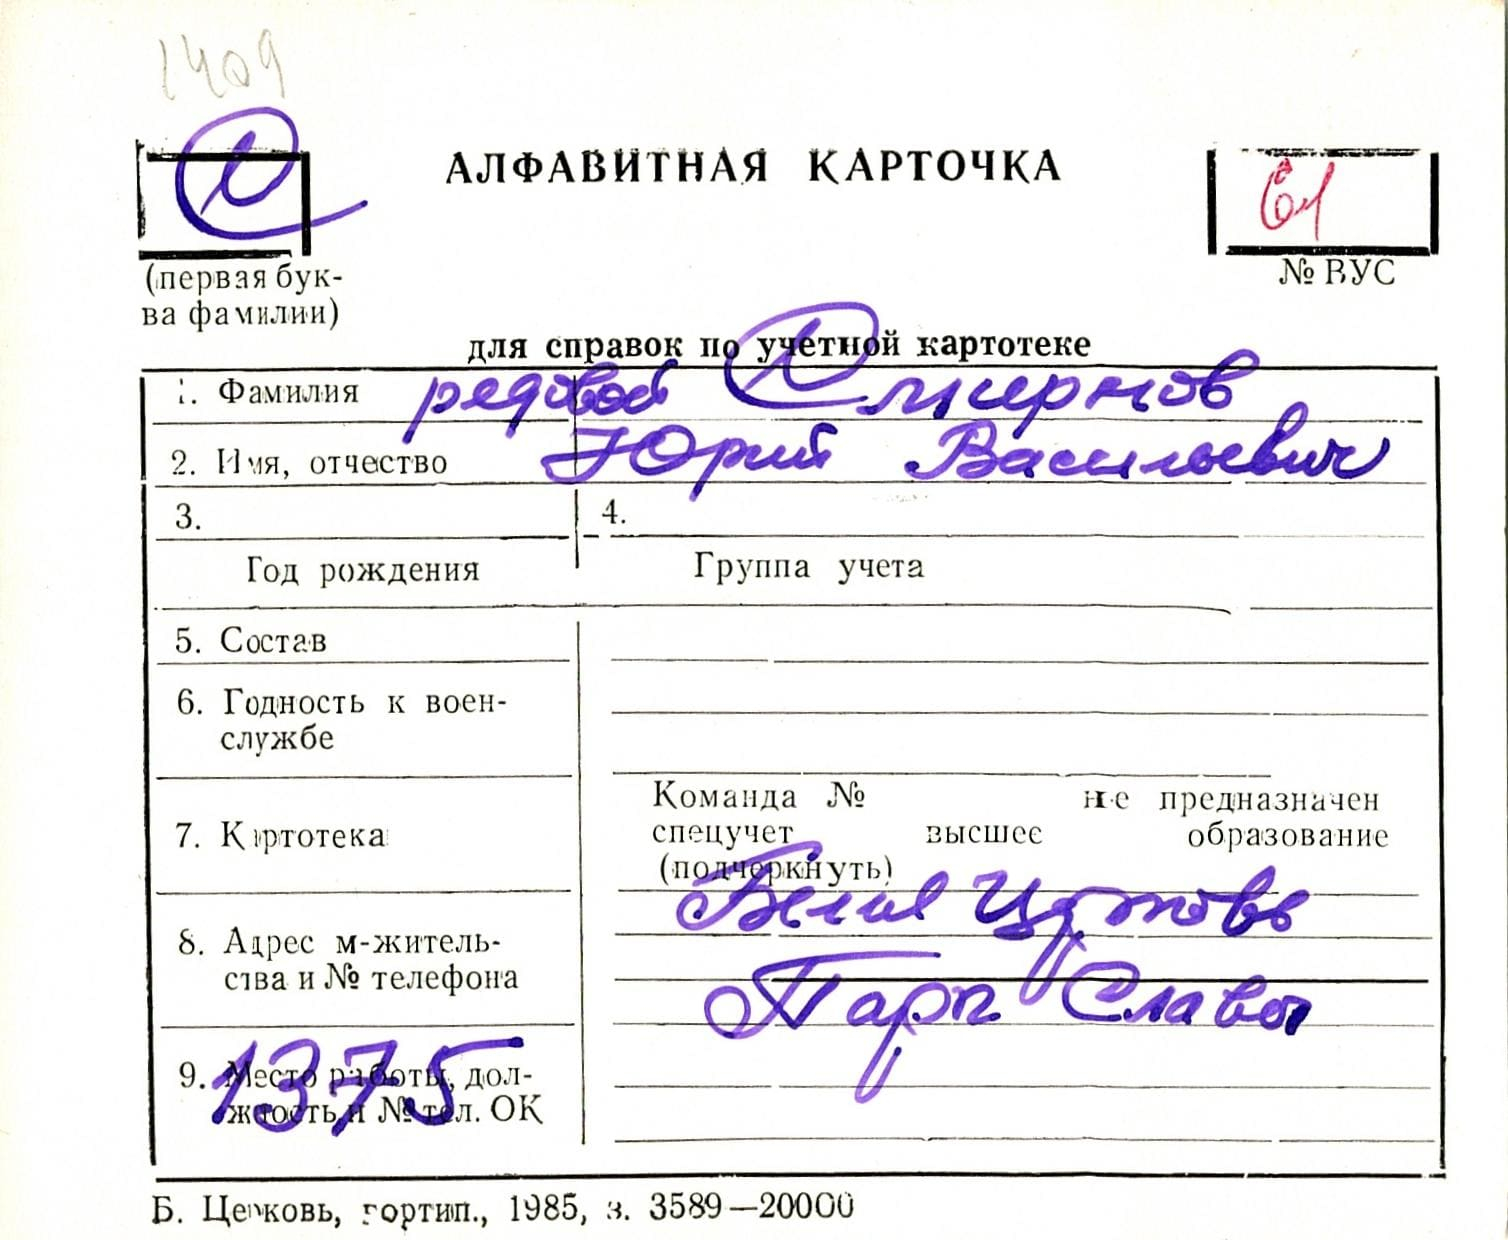 1409
С
АЛФАВИТНАЯ КАРТОЧКА
61
(первая бук-
ва фамилии)
№ ВУС
для справок по учетной картотеке
1. Фамилия рядовой Смирнов
2. Имя, отчество Юрий Васильевич
3. 4.
Год рождения Группа учета
5. Состав
6. Годность к воен-
службе
Команда № не предназначен
7. Картотека спецучет высшее образование
(подчеркнуть)
Белая Церковь
8. Адрес м-житель-
ства и № телефона
Парк Славы
9. Место работы, дол-
жность и № тел. ОК
1375
Б. Церковь, гортип., 1985, з. 3589—20000